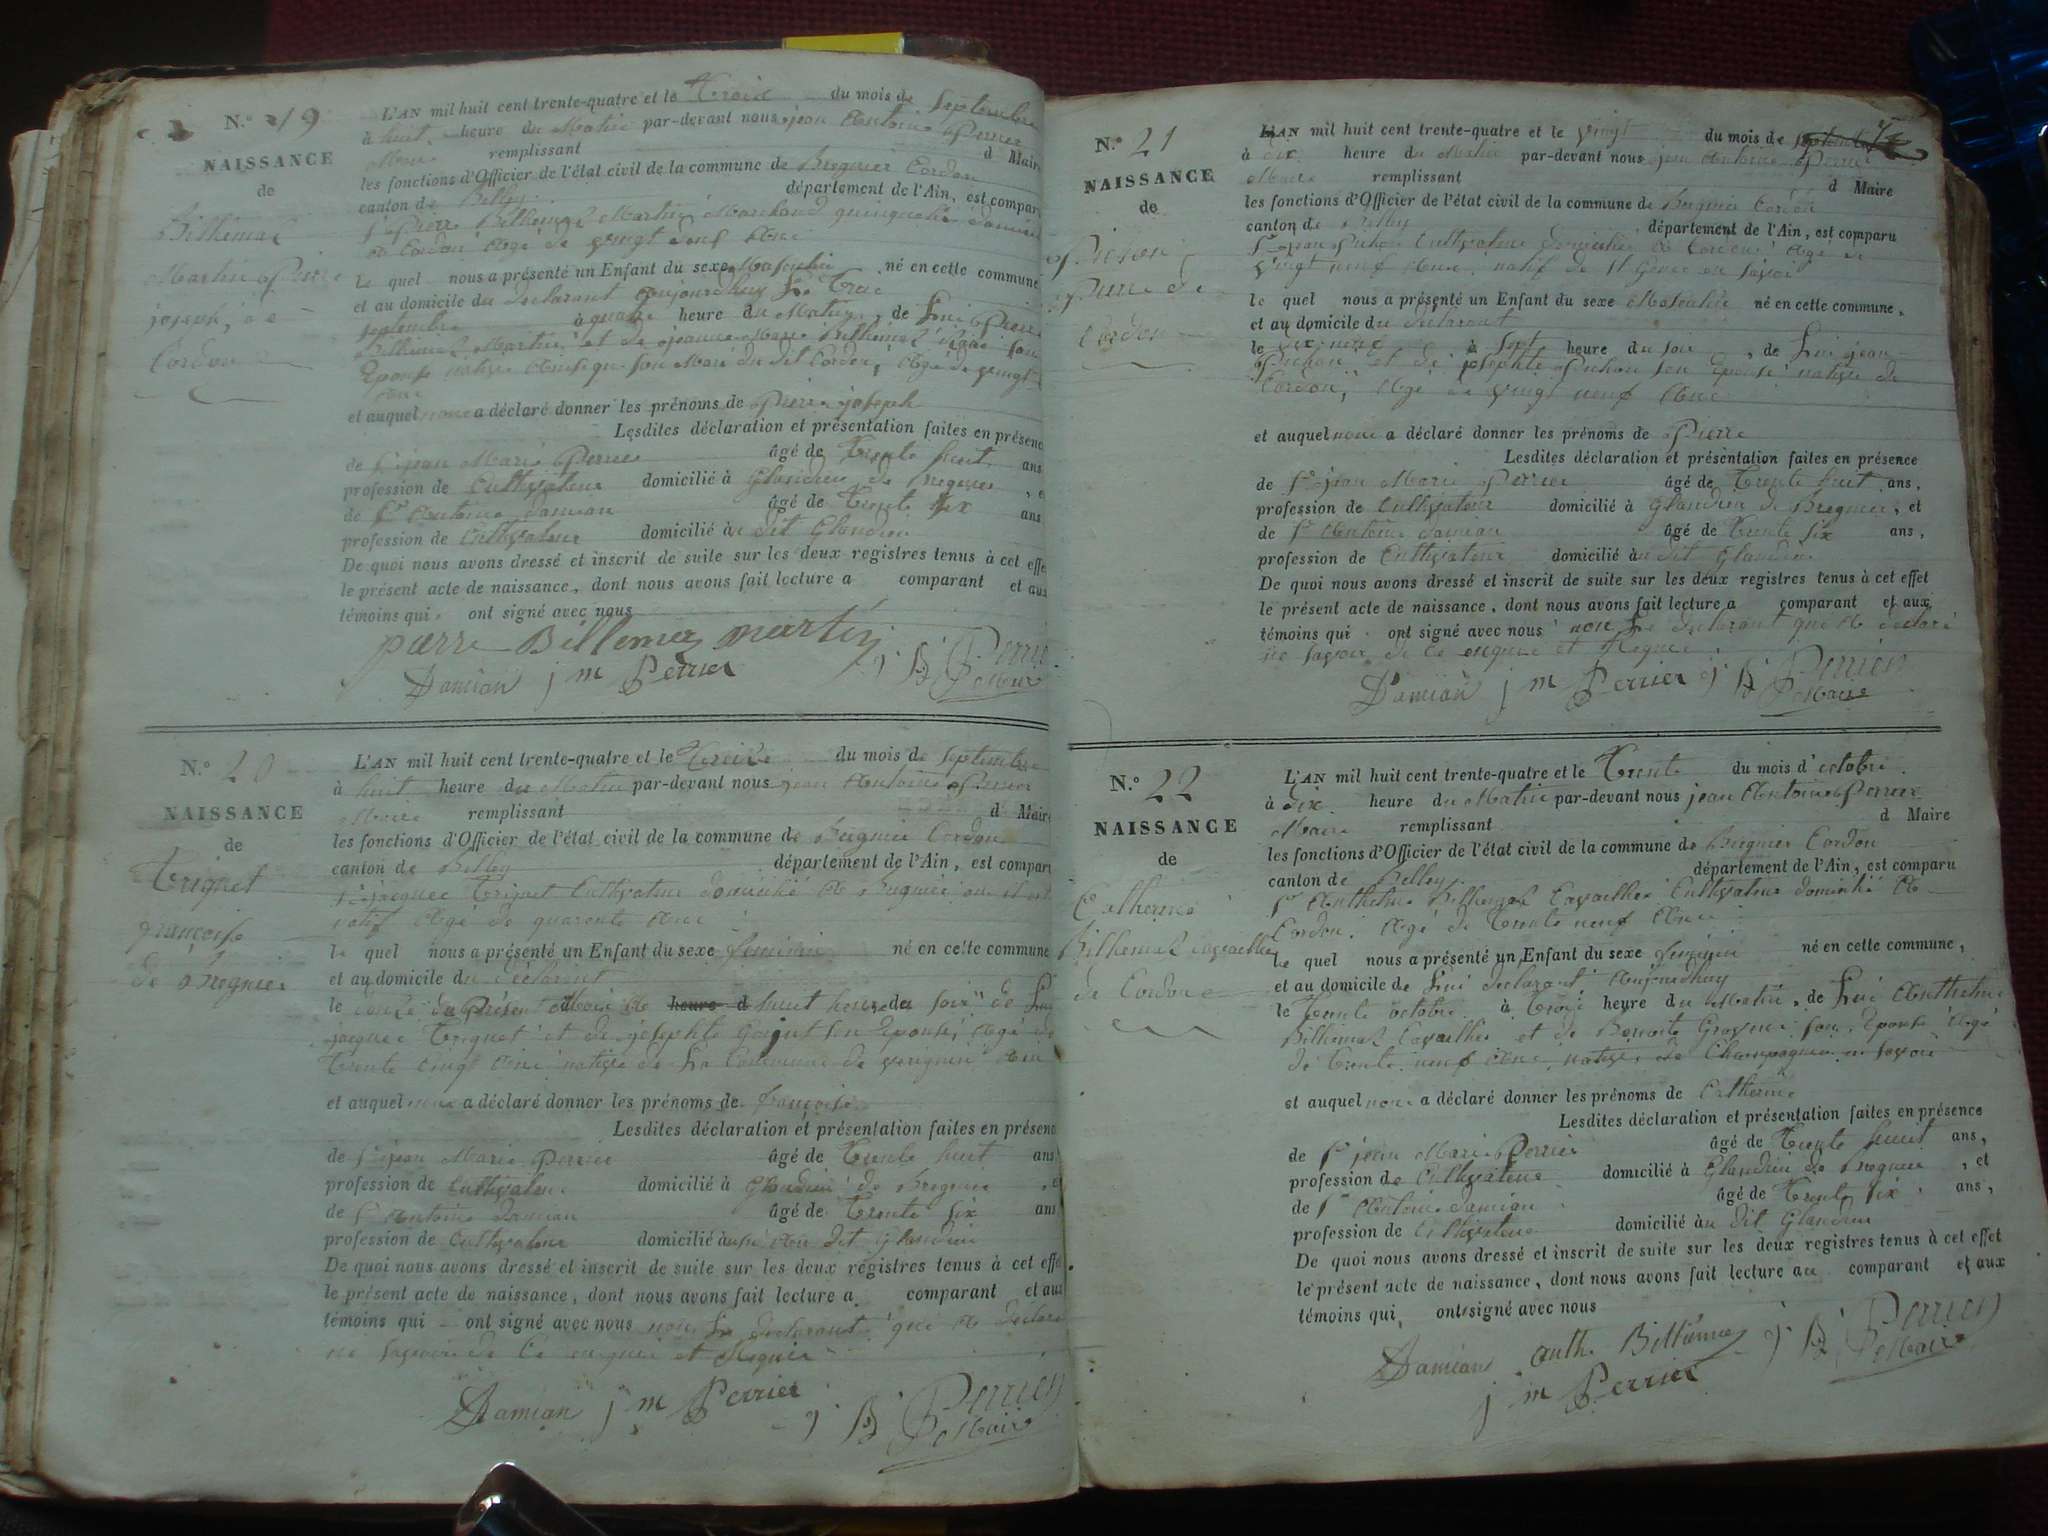 N.° 19
NAISSANCE
de
Bilhemaz
Martin Pierre
joseph, de
Cordon
L'AN mil huit cent trente-quatre et le trois du mois de septembre
à huit heure du Matin par-devant nous jean Antoine Perrier
Maire remplissant d Maire
les fonctions d'Officier de l'état civil de la commune de Bregnier Cordon
canton de Belley département de l'Ain, est comparu
Sr Pierre Bilhemaz Martin Marchand domicilié
à Cordon Agé de vingt neuf Ans
le quel nous a présenté un Enfant du sexe Masculin né en cette commune
et au domicile du declarant aujourdhuy le trois
septembre à quatre heure du Matin, de Lui Pierre
Bilhemaz Martin et de Marie Bilhemaz son
Epouse native Ainsi que son Mari du dit Cordon, Agé de vingt
et auquel nous a déclaré donner les prénoms de Pierre joseph
Lesdites déclaration et présentation faites en présence
de Sr jean Marie Perrier âgé de trente huit ans
profession de Cultivateur domicilié à Glandieu de Bregnier, et
de Sr Antoine Damian âgé de trente six ans
profession de Cultivateur domicilié à dit Glandieu
De quoi nous avons dressé et inscrit de suite sur les deux registres tenus à cet effe
le présent acte de naissance, dont nous avons fait lecture a comparant et aux
témoins qui ont signé avec nous
pierre Billemaz martin
Damian j m Perrier j B Perrier
Maire
N.° 20
NAISSANCE
de
Triquet
françoise
de Bregnier
L'AN mil huit cent trente-quatre et le treize du mois de septembre
à huit heure du Matin par-devant nous jean Antoine Perrier
Maire remplissant d Maire
les fonctions d'Officier de l'état civil de la commune de Bregnier Cordon
canton de Belley département de l'Ain, est comparu
Sr jacques Triquet Cultivateur domicilié à Bregnier ou il est
natif Agé de quarente Ans
le quel nous a présenté un Enfant du sexe feminin né en cette commune
et au domicile du declarant
le onze du présent Mois à heure d huit heure du soir de Lui
jacques Triquet et de josephte son Epouse, Agé de
trente cinq Ans native de La Commune de
et auquel nous a déclaré donner les prénoms de françoise
Lesdites déclaration et présentation faites en présence
de Sr jean Marie Perrier âgé de trente huit ans
profession de Cultivateur domicilié à Glandieu de Bregnier, et
de Sr Antoine Damian âgé de trente six ans
profession de Cultivateur domicilié au dit Glandieu
De quoi nous avons dressé et inscrit de suite sur les deux registres tenus à cet effe
le présent acte de naissance, dont nous avons fait lecture a comparant et aux
témoins qui ont signé avec nous non Le declarant qui A declaré
ne savoir de ce enquis et Requis
Damian j m Perrier j B Perrier
Maire
N.° 21
NAISSANCE
de
Pichon
Pierre de
Cordon
L'AN mil huit cent trente-quatre et le vingt du mois de septembre
à dix heure du Matin par-devant nous jean Antoine Perrier
Maire remplissant d Maire
les fonctions d'Officier de l'état civil de la commune de Bregnier Cordon
canton de Belley département de l'Ain, est comparu
Sr jean Pichon Cultivateur domicilié à Cordon Agé de
vingt neuf Ans, natif de St Genis en savoi
le quel nous a présenté un Enfant du sexe Masculin né en cette commune,
et au domicile du declarant
le dix neuf à sept heure du soir, de Lui jean
Pichon et de josephte Pichon son Epouse native de
Cordon, Agé de vingt neuf Ans
et auquel nous a déclaré donner les prénoms de Pierre
Lesdites déclaration et présentation faites en présence
de Sr jean Marie Perrier âgé de trente huit ans,
profession de Cultivateur domicilié à Glandieu de Bregnier, et
de Sr Antoine Damian âgé de trente six ans,
profession de Cultivateur domicilié au dit Glandieu
De quoi nous avons dressé et inscrit de suite sur les deux registres tenus à cet effet
le présent acte de naissance, dont nous avons fait lecture a comparant et aux
témoins qui ont signé avec nous non Le declarant qui A declaré
ne savoir de ce enquis et Requis.
Damian j m Perrier j B Perrier
Maire
N.° 22
NAISSANCE
de
Catherine
Bilhemaz Cavaillie
de Cordon
L'AN mil huit cent trente-quatre et le trente du mois d'octobre
à dix heure du Matin par-devant nous jean Antoine Perrier
Maire remplissant d Maire
les fonctions d'Officier de l'état civil de la commune de Bregnier Cordon
canton de Belley département de l'Ain, est comparu
Sr Anthelme Bilhemaz Cavaillie Cultivateur domicilié à
Cordon. Agé de trente neuf Ans
le quel nous a présenté un Enfant du sexe feminin né en cette commune,
et au domicile de Lui declarant, Aujourdhuy
le trente octobre à trois heure du Matin, de Lui Anthelme
Bilhemaz Cavaillie et de Benoite son Epouse Agé
de trente neuf Ans, native de Champagneu en savoi
et auquel nous a déclaré donner les prénoms de Catherine
Lesdites déclaration et présentation faites en présence
de Sr jean Marie Perrier âgé de trente huit ans,
profession de Cultivateur domicilié à Glandieu de Bregnier, et
de Sr Antoine Damian âgé de trente six, ans,
profession de Cultivateur domicilié au dit Glandieu
De quoi nous avons dressé et inscrit de suite sur les deux registres tenus à cet effet
le présent acte de naissance, dont nous avons fait lecture au comparant et aux
témoins qui, ont signé avec nous
Damian anth. Billiemaz j B Perrier
j m Perrier Maire